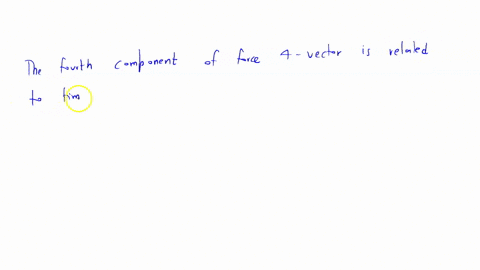 The fourth component of force 4-vector is related
to tim